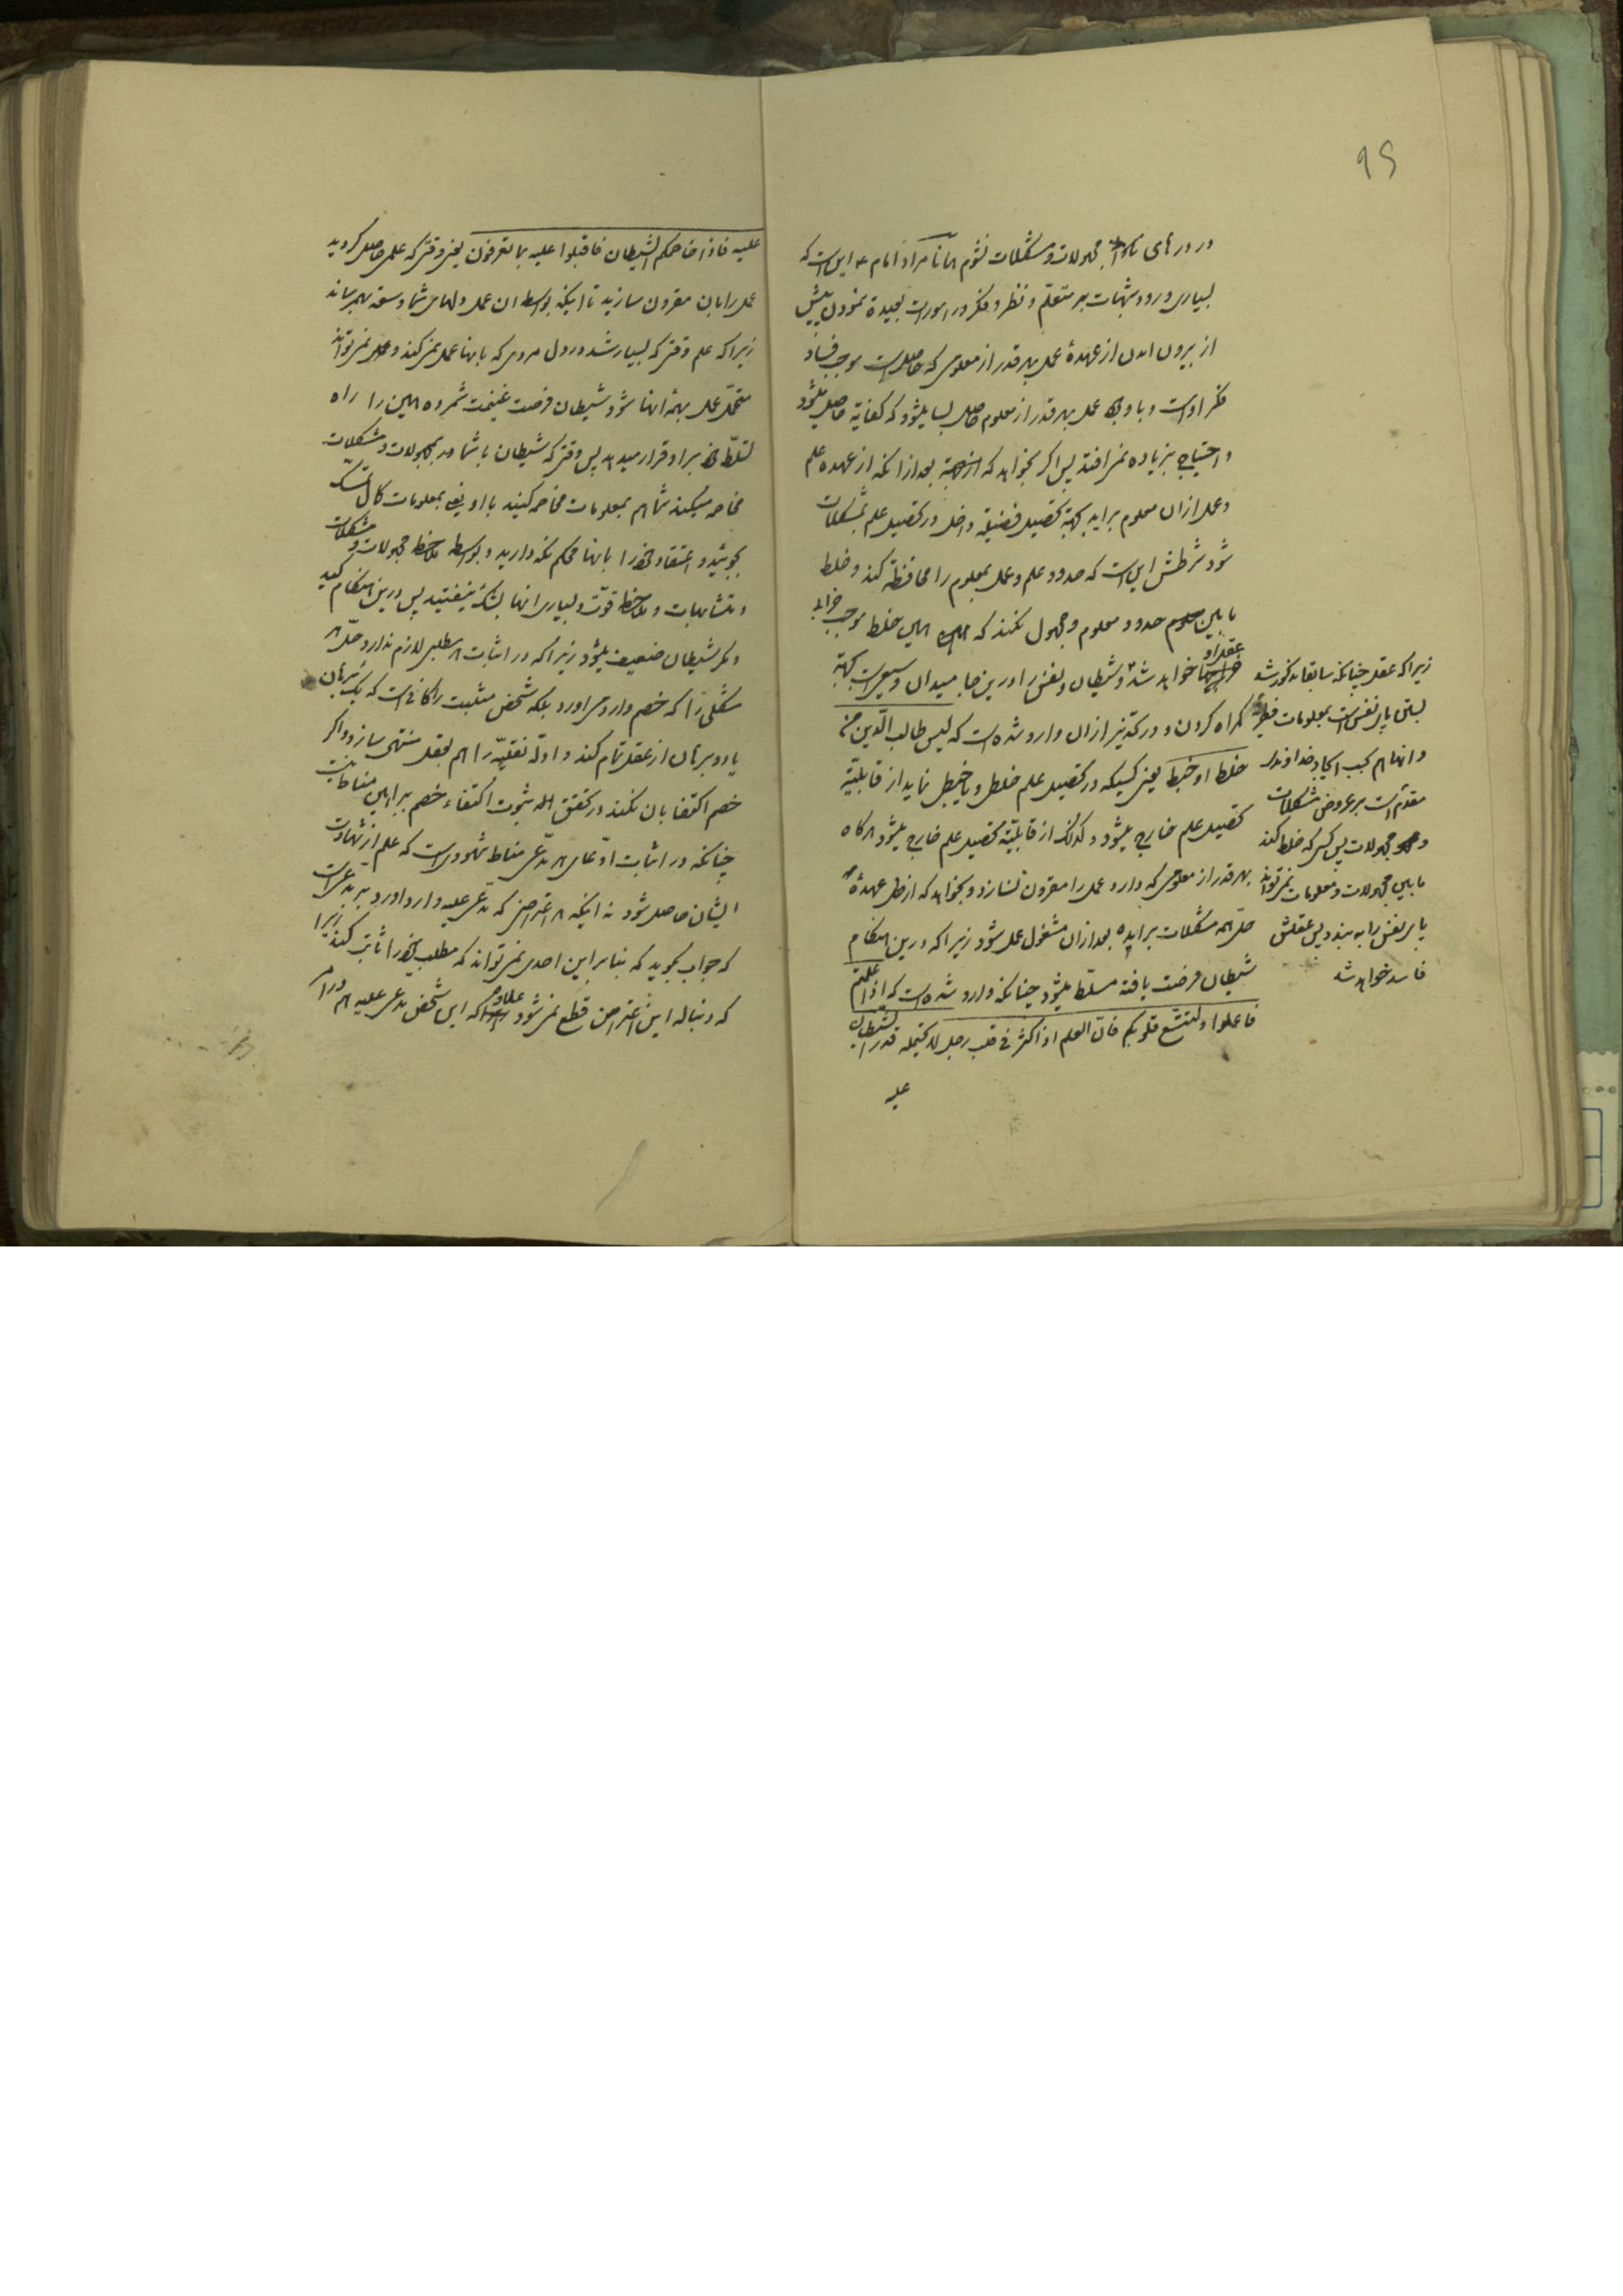 در درهای مجهولات و مشکلات نشوم همانا مراد امام ع این است که
بسیاری ورود شبهات بر متعلم و نظر و فکر در امورات بعیده نمودن پیش
از بیرون امدن از عهدهٔ عمل بهر قدر از معلومی که حاصل است موجب فساد
فکر او است و با وجود عمل بهر قدر از معلوم حاصل بسا میشود که کفایة حاصل میشود
و احتیاج بزیاده نمی افتد پس اکر بخواهد که بعد از انکه از عهده علم
و عمل از ان معلوم براید بجهة تحصیل فضیلة داخل در تحصیل علم بمشکلات
شود شرطش این است که حدود علم و عمل بمعلوم را محافظة کند و خلط
ما بین حدود معلوم و مجهول نکند که همین خلط موجب خرابی
عقل او خواهد شد و شیطان و نفس را در ین جا میدان وسیعی است بجهة
کمراه کردن و در کتب نیز از ان وارد شده است که لیس طالب الدین من
خلط او خبط یعنی کسیکه در تحصیل علم خلط و یا خبط نماید از قابلیّة
تحصیل علم خارج میشود و کذلک از قابلیّة تحصیل علم خارج میشود هرکاه
بهر قدر از معلومی که دارد عمل را مقرون نسازد و بخواهد که از عهدهٔ
حل همه مشکلات براید و بعد از ان مشغول عمل شود زیرا که در ین هنکام
شیطان فرصت یافته مسلّط میشود چنانکه وارد شده است که اذا علمتم
فاعملوا و لتتسع قلوبکم فان العلم اذا کثر فی قلب رجل لا یحتمله قدر الشیطان
علیه
زیرا که عقل چنانکه سابقا مذکور شد
بستن پای نفس است بمعلومات فطریّه
و انها هم بحسب ایجاد خداوندی
مقدم است بر عروض مشکلات
و مجهولات پس کسی که خلط کند
ما بین مجهولات و معلومات نمی تواند
پای نفس را به بندد پس عقلش
فاسد خواهد شد
علیه فاذا خاصمکم الشیطان فاقبلوا علیه بما تعرفون یعنی وقتی که علمی حاصل کردید
عمل را بان مقرون سازید تا اینکه بواسطه ان عمل دلهای شما وسعة بهم رساند
زیرا که علم وقتی که بسیار شد در دل مردی که بانها عمل نمی کند و نمی تواند
متحمّل عمل بهمهٔ انها شود شیطان فرصت غنیمت شمرده همین را راه
تسلّط خود بر او قرار میدهد پس وقتی که شیطان با شما در مجهولات و مشکلات
مخاصمه میکند شما هم بمعلومات مخاصمه کنید با او یعنی بمعلومات کمال تمسّک
بجوئید و اعتقاد خود را بانها محکم نکه دارید و بواسطه ملاحظه مجهولات و مشکلات
و متشابهات و ملاحظه قوّت و بسیاری انها بشک نیفتید پس در ین هنکام کید
و مکر شیطان ضعیف میشود زیرا که در اثبات هر مطلبی لازم ندارد حلّ هر
مشکلی را که خصم وارد می اورد بلکه شخص مثبت را کافی است که یک برهان
یا دو برهان از عقل تمام کند و ادلّه نقلیّه را هم بعقل منتهی سازد و اکر
خصم اکتفا بان نکند در تحقق امر ثبوت اکتفاء خصم براهین مناط نیست
چنانکه در اثبات ادّعای هر مدّعی مناط شهودی است که علم از شهادت
ایشان حاصل شود نه اینکه هر اعتراضی که مدّعی علیه وارد اورد بر مدّعی است
که جواب بکوید که بنا بر این احدی نمی تواند که مطلب خود را ثابت کند زیرا
که دنباله این اعتراض قطع نمی شود علاوه که این شخص مدّعی علیه هم در امر